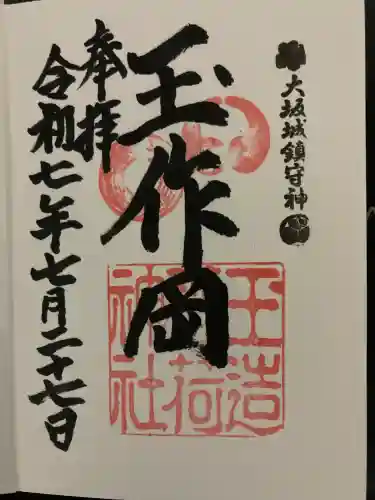 大坂城鎮守神
玉作岡
玉造
稲荷
神社
奉拝
令和七年七月二十七日